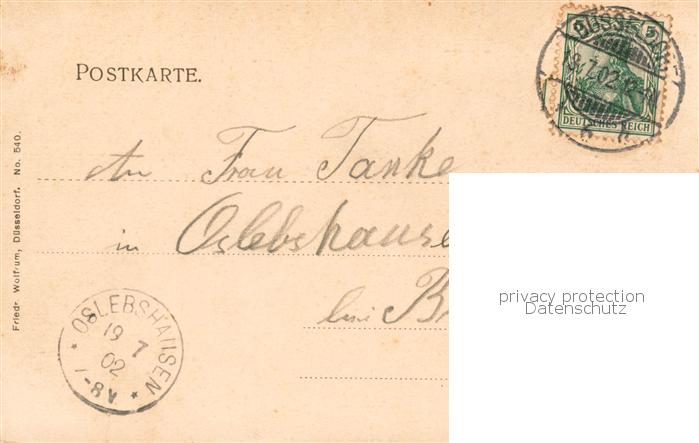 POSTKARTE.
5
DÜSSELDORF
19.7.02.
DEUTSCHES REICH
An Frau Tanke
in Oslebshause
bei B
privacy protection
Datenschutz
OSLEBSHAUSEN
19 7
02
7-8V.
Friedr. Wolfrum, Düsseldorf. No. 540.